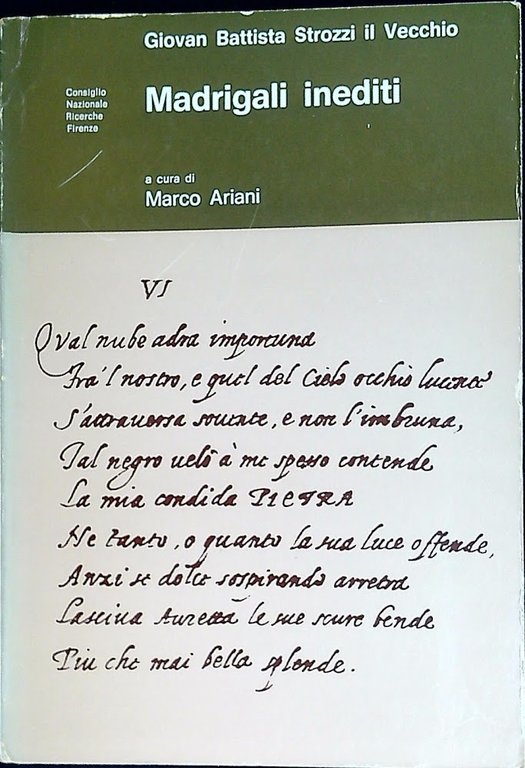 Giovan Battista Strozzi il Vecchio
Consiglio
Nazionale
Ricerche
Firenze
Madrigali inediti
a cura di
Marco Ariani
VI
Qval nube adra importuna
Fra'l nostro, e quel del Cielo occhio lucente
S'attrauersa souente, e non l'imbruna,
Tal negro uelo à me spesso contende
La mia candida PIETRA
Ne tanto, o quanto la sua luce offende,
Anzi se dolce sospirando arretra
Lasciua Auretta le sue scure bende
Piu che mai bella splende.